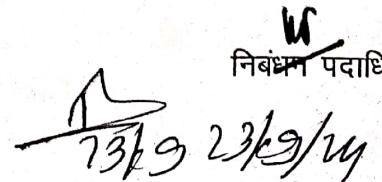 निबंधन पदाधि
23/9 23/09/24